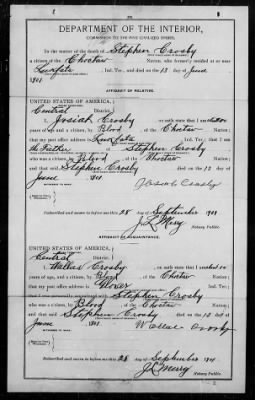 DEPARTMENT OF THE INTERIOR,
COMMISSION TO THE FIVE CIVILIZED TRIBES.
In the matter of the death of Stephen Crosby
a citizen of the Choctaw Nation, who formerly resided at or near
Lukfata, Ind. Ter., and died on the 13 day of June
1901
AFFIDAVIT OF RELATIVE.
UNITED STATES OF AMERICA,
Indian Territory,
Central District.
I, Josiah Crosby, on oath state that I am
years of age and a citizen, by Blood, of the Choctaw Nation;
that my post office address is Lukfata, Ind. Ter.; that I am
the Father of Stephen Crosby
who was a citizen, by Blood, of the Choctaw Nation;
and that said Stephen Crosby died on the 13 day of
June, 1901
Josiah Crosby
WITNESSES TO MARK:
Subscribed and sworn to before me this 28 day of September 1901
J L Merry
Notary Public.
AFFIDAVIT OF ACQUAINTANCE.
UNITED STATES OF AMERICA,
Indian Territory,
Central District.
I, Wallas Crosby, on oath state that I am
years of age, and a citizen by Blood of the Choctaw Nation;
that my post office address is Ind. Ter.;
that I was personally acquainted with Stephen Crosby
who was a citizen, by Blood, of the Choctaw Nation;
and that said Stephen Crosby died on the 13 day of
June, 1901
Crosby
WITNESSES TO MARK:
Subscribed and sworn to before me this 28 day of September 1901
J L Merry
Notary Public.